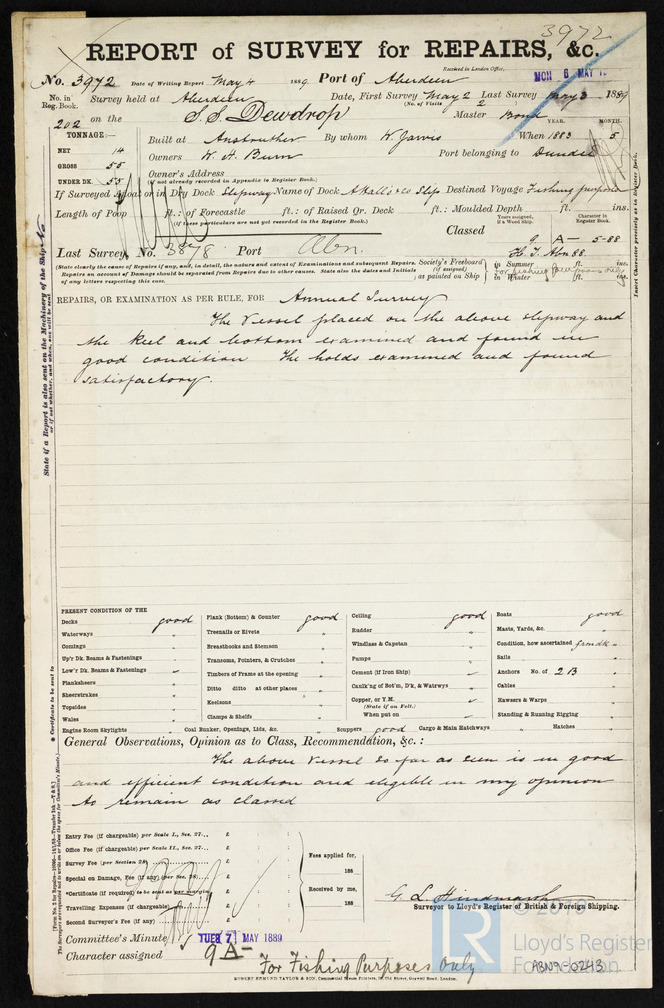 3972
REPORT of SURVEY for REPAIRS, &c.
Received in London Office,
MON 6 MAY
No. 3972 Date of Writing Report May 4 1889 Port of Aberdeen
No. in Reg. Book. Survey held at Aberdeen Date, First Survey May 2 Last Survey May 3 1889
(No. of Visits 2
202 on the S.S. Dewdrop Master Bond
TONNAGE:—
YEAR. MONTH.
Built at Anstruther By whom W. Jarvis When 1883 5
NET 14
GROSS 55
UNDER DK. 55
Owners W. H. Burn Port belonging to Dundee
Owner's Address
(if not already recorded in Appendix to Register Book.)
If Surveyed Afloat or in Dry Dock Slipway Name of Dock A Hall & Co Slip Destined Voyage Fishing purposes
Length of Poop ft.: of Forecastle ft.: of Raised Qr. Deck ft.: Moulded Depth ft. ins.
(if these particulars are not yet recorded in the Register Book.)
Years assigned, if a Wood Ship.
Character in Register Book.
Classed 9 A— 5-88
Last Survey, No. 3878 Port Abn. H. T. Abn 88
(State clearly the cause of Repairs if any, and, in detail, the nature and extent of Examinations and subsequent Repairs.
Repairs on account of Damage should be separated from Repairs due to other causes. State also the dates and Initials
of any letters respecting this case.
Society's Freeboard (if assigned) as painted on Ship
in Summer ft. ins.
in Winter ft. ins.
for fishing purposes only
REPAIRS, OR EXAMINATION AS PER RULE, FOR Annual Survey
The Vessel placed on the above slipway and
the Keel and bottom examined and found in
good condition The holds examined and found
satisfactory.
State if a Report is also sent on the Machinery of the Ship No
or if not whether, and when, one will be sent
Insert Character precisely as in Register.
* Certificate to be sent to
PRESENT CONDITION OF THE
Decks good
Waterways "
Comings "
Up'r Dk. Beams & Fastenings
Low'r Dk. Beams & Fastenings
Planksheers
Sheerstrakes
Topsides
Wales
Engine Room Skylights
Plank (Bottom) & Counter good
Treenails or Rivets "
Breasthooks and Stemson "
Transoms, Pointers, & Crutches "
Timbers of Frame at the opening
Ditto ditto at other places
Keelsons
Clamps & Shelfs
Coal Bunker, Openings, Lids, &c.
Ceiling good
Rudder "
Windlass & Capstan "
Pumps "
Cement (if Iron Ship)
Caulk'ng of Bot'm, D'k, & Watrwys
Copper, or Y.M.
(State if on Felt.)
When put on
Scuppers good
Cargo & Main Hatchways "
Boats good
Masts, Yards, &c. "
Condition, how ascertained from dk
Sails "
Anchors No. of 2B
Cables "
Hawsers & Warps "
Standing & Running Rigging "
Hatches "
General Observations, Opinion as to Class, Recommendation, &c.:
The above Vessel so far as seen is in good
and efficient condition and eligible in my opinion
to remain as classed
Entry Fee (if chargeable) per Scale I., Sec. 27... £ : :
Office Fee (if chargeable) per Scale II., Sec. 27... £ : :
Survey Fee (per Section 28) £ : :
Special on Damage, Fee (if any) (per Sec. 28) £ : :
*Certificate (if required) to be sent as per margin £ : :
Travelling Expenses (if chargeable) £ : :
Second Surveyor's Fee (if any) £ : :
Fees applied for,
188
Received by me,
188
G L Hindmarsh
Surveyor to Lloyd's Register of British & Foreign Shipping.
Committee's Minute TUES 7 MAY 1889
Character assigned 9 A—
For Fishing Purposes only
ROBERT EDMUND TAYLOR & SON, Commercial Steam Printers, 19, Old Street, Goswell Road, London.
LR
© 2019
Lloyd's Register
Foundation
ABN9-0243